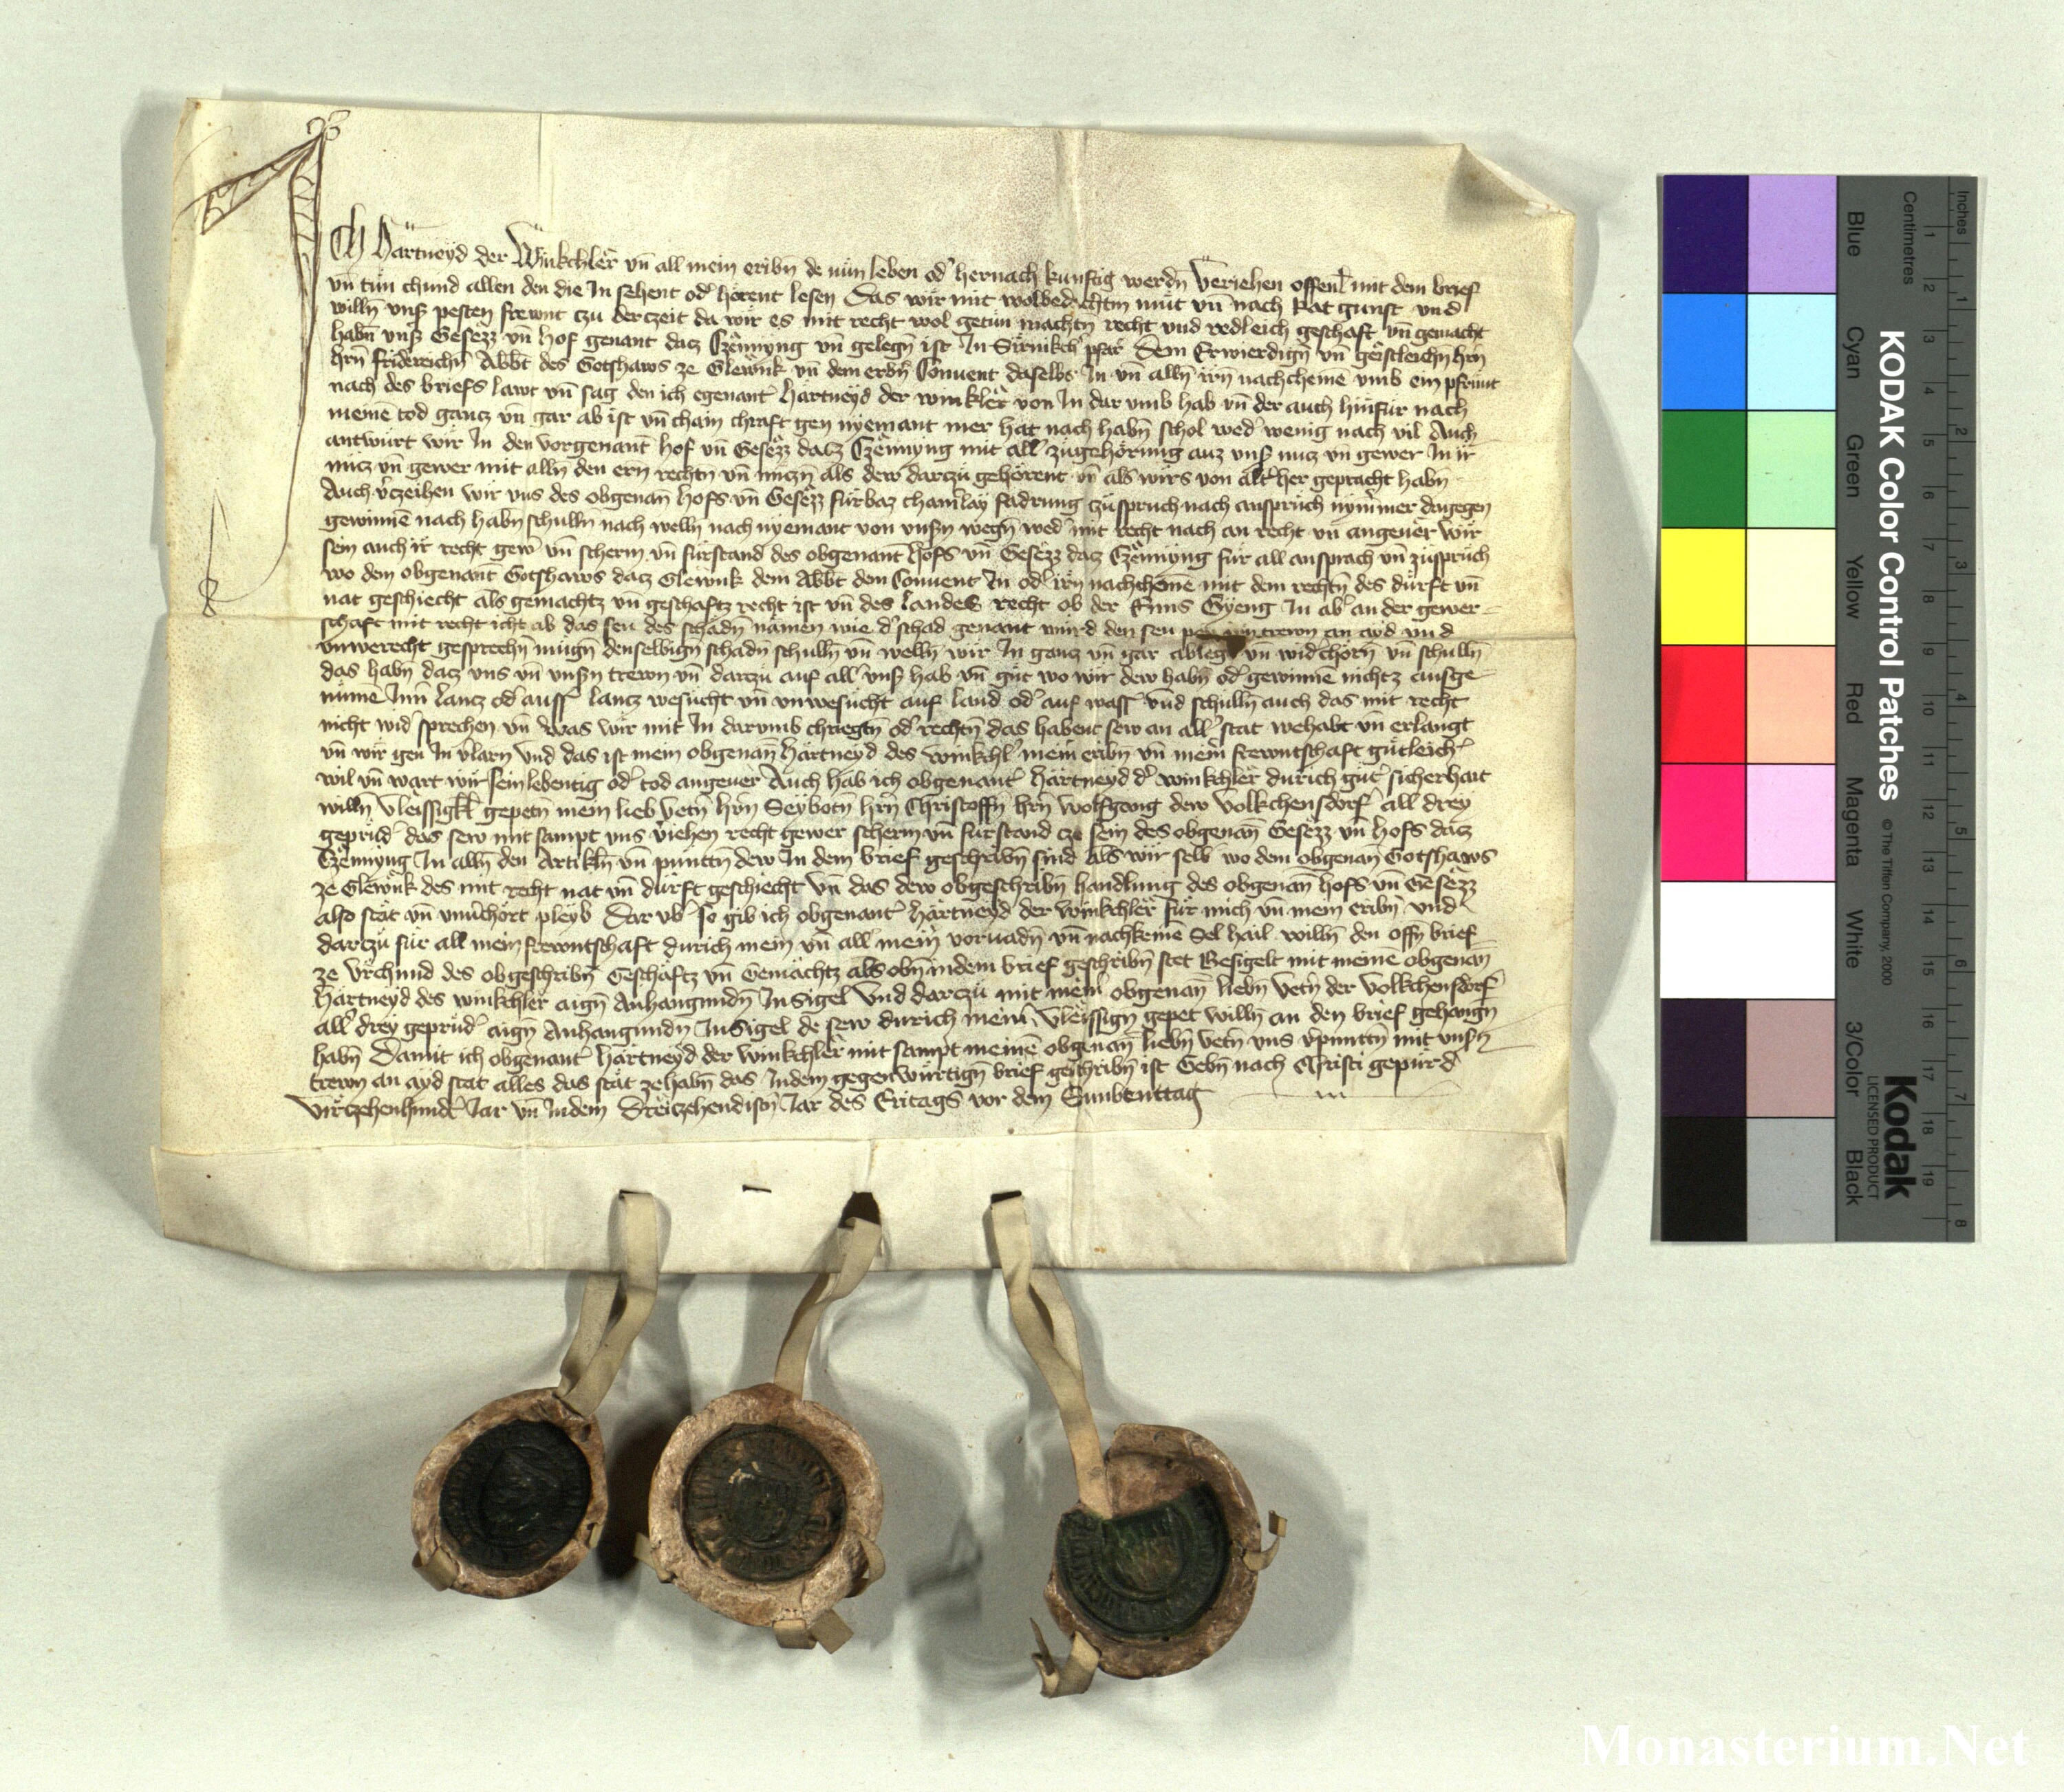 Ich Härtneyd der Winkchler vn̄ all mein eribn̄ de nün leben od' hernach kunftig werdn̄ Veriehen offenl mit dem brief
vn̄ tün chund allen den die In sehent od' hörent lesen Das wir mit wolbedachtm müt vn̄ nach Rat gunst vnd
willn̄ vnss pesten frewnt czu der czeit da wir es mit recht wol getün machtn̄ recht vnd redleich geschaft vn̄ gemacht
habn̄ vnss Gesëzz vn̄ hof genant dacz Czënnyng vn̄ gelegn̄ ist In Sirnikch pfar Dem Erwierdign̄ vn̄ geistleichn̄ hrn̄
hrn̄ fridereichn̄ Abbt des Gotshaws ze Glewnk vn̄ dem erbn̄ Conuent daselbs In vn̄ alln̄ irn̄ nachchemē vmb ein pfrünt
nach des briefs lawt vn̄ sag den ich egenant' Härtneyd der winkler von In dar vmb hab vn̄ der auch hinfür nach
meinē tod gancz vn̄ gar ab ist vn̄ chain chraft gen nyemant mer hat nach habn̄ schol wed' wenig nach vil Auch
antwürt wir In den vorgenant̄ hof vn̄ Gesëzz dacz Czënnyng mit all' zügehörung auz vnss nucz vn̄ gewer In ir
nücz vn̄ gewer mit alln̄ den ern̄ rechtn̄ vn̄ nüczn̄ als dew darczü gehörent vn̄ als wirs von alt'her gepracht habn̄
Auch v'czeihen wir vns des obgenan̄ hofs vn̄ Gesëzz fürbaz chainlay fadrung züspruch nach anspruch nymmer dagegen
gewinnē nach habn̄ schulln̄ nach welln̄ nach nyemant von vnsn̄ wegn̄ wed' mit recht nach an recht vn̄ angeuer Wir
sein auch ir recht gew' vn̄ scherm vn̄ fürstand des obgenant̄ hofs vn̄ Gesëzz dacz Czënnyng für all ansprach vn̄ züspruch
wo dem obgenant̄ Gotshaws dacz Glewnk dem Abbt dem Conuent In od' irn̄ nachchömē mit dem rechtn̄ des dürft vn̄
nat geschiecht als gemachtz vn̄ geschaftz recht ist vn̄ des Landes recht ob der Enns Gyeng In ab' an der gewer
schaft mit recht icht ab das seu des schadn̄ nämen wie d' schad genant wurd den seu trewn an ayd vnd
vnwerecht gesprechn̄ mügn̄ denselbign̄ schadn̄ schulln̄ vn̄ welln̄ wir In gancz vn̄ gar ablegn vn̄ wid'chörn̄ vn̄ schulln̄
das habn̄ dacz vns vn̄ vnsn̄ trewn vn̄ darczü auf all' vnss hab vn̄ güt wo wir dew habn̄ od' gewinnē nichtz ausge
nümē Inn̄ lancz od' auss' lancz wesücht vn̄ vnwesücht auf land od' auf wass' vnd schulln̄ auch das mit recht
nicht wid'sprechen vn̄ was wir mit In darumb chriegtn̄ od' rechtn̄ das habent sew an all' stat wehabt vn̄ erlangt
vn̄ wir gen In v'larn Vnd das ist mein obgenan̄ Härtneyd des Winkchl' mein eribn̄ vn̄ mein' frewntschaft gütleich'
wil vn̄ wart wir sein lebentig od' tod angeuer Auch hab ich obgenant' Härtneyd d' winkchler durich güt' sicherhait
willn̄ vleissigkl' gepetn̄ mein lieb Vetn̄ hrn̄ Seybotn̄ hrn̄ Christoffn̄ hrn̄ Wolfgang dew Volkchensdorf' all drey
geprüd' das sew mit sampt vns v'iehen recht gewer scherm vn̄ fürstand cze sein des obgenan̄ Gesëzz vn̄ hofs dacz
Czënnyng In alln̄ den Artikln̄ vn̄ punttn̄ dew In dem brief geschribn̄ sind als wir selb wo dem obgenan̄ Gotshaws
ze Glewnk des mit recht nat vn̄ dürft geschiecht Vn̄ das dew obgeschribn̄ handlung des obgenan̄ hofs vn̄ Gesëzz
also stät vn̄ vnu'chört pleyb Dar vb' so gib ich obgenant' Härtneyd der winkchler für mich vn̄ mein eribn̄ vnd
darczü für all mein frewntschaft durich mein vn̄ all' mein' voruadn̄ vn̄ nachkemē Sel hail willn̄ den offn̄ brief
ze Vrchund des obgeschribn̄ Geschäftz vn̄ Gemächtz als obn̄ in dem brief geschribn̄ stet Besigelt mit meinē obgenan̄
Härtneyd des winkchler aign̄ Anhangundn̄ Insigel Vnd darczü mit mein' obgenan̄ liebn̄ Vetn̄ der Volkchensdorf'
all' drey geprüd' aign̄ Anhangundn̄ Insigel de sew durich meins vleissign̄ gepet willn̄ an den brief gehangn̄
habn̄ Damit ich obgenant' Härtneyd der Winkchler mit sampt meinē obgenan̄ liebn̄ vetn̄ vns v'punttn̄ mit vnsn̄
trewn an ayd stat alles das stät ze habn̄ das In dem gegenwürtign̄ brief geschribn̄ ist Gebn̄ nach Christi gepürd
Virczehenhund't Jar vn̄ In dem Dreiczehendisn̄ Jar des Eritags vor dem Sunbenttag
KODAK Color Control Patches
© The Tiffen Company, 2000
Kodak
LICENSED PRODUCT
Inches
Centimetres
1 2 3 4 5 6 7 8
1 2 3 4 5 6 7 8 9 10 11 12 13 14 15 16 17 18 19
Blue
Cyan
Green
Yellow
Red
Magenta
White
3/Color
Black
Monasterium.Net